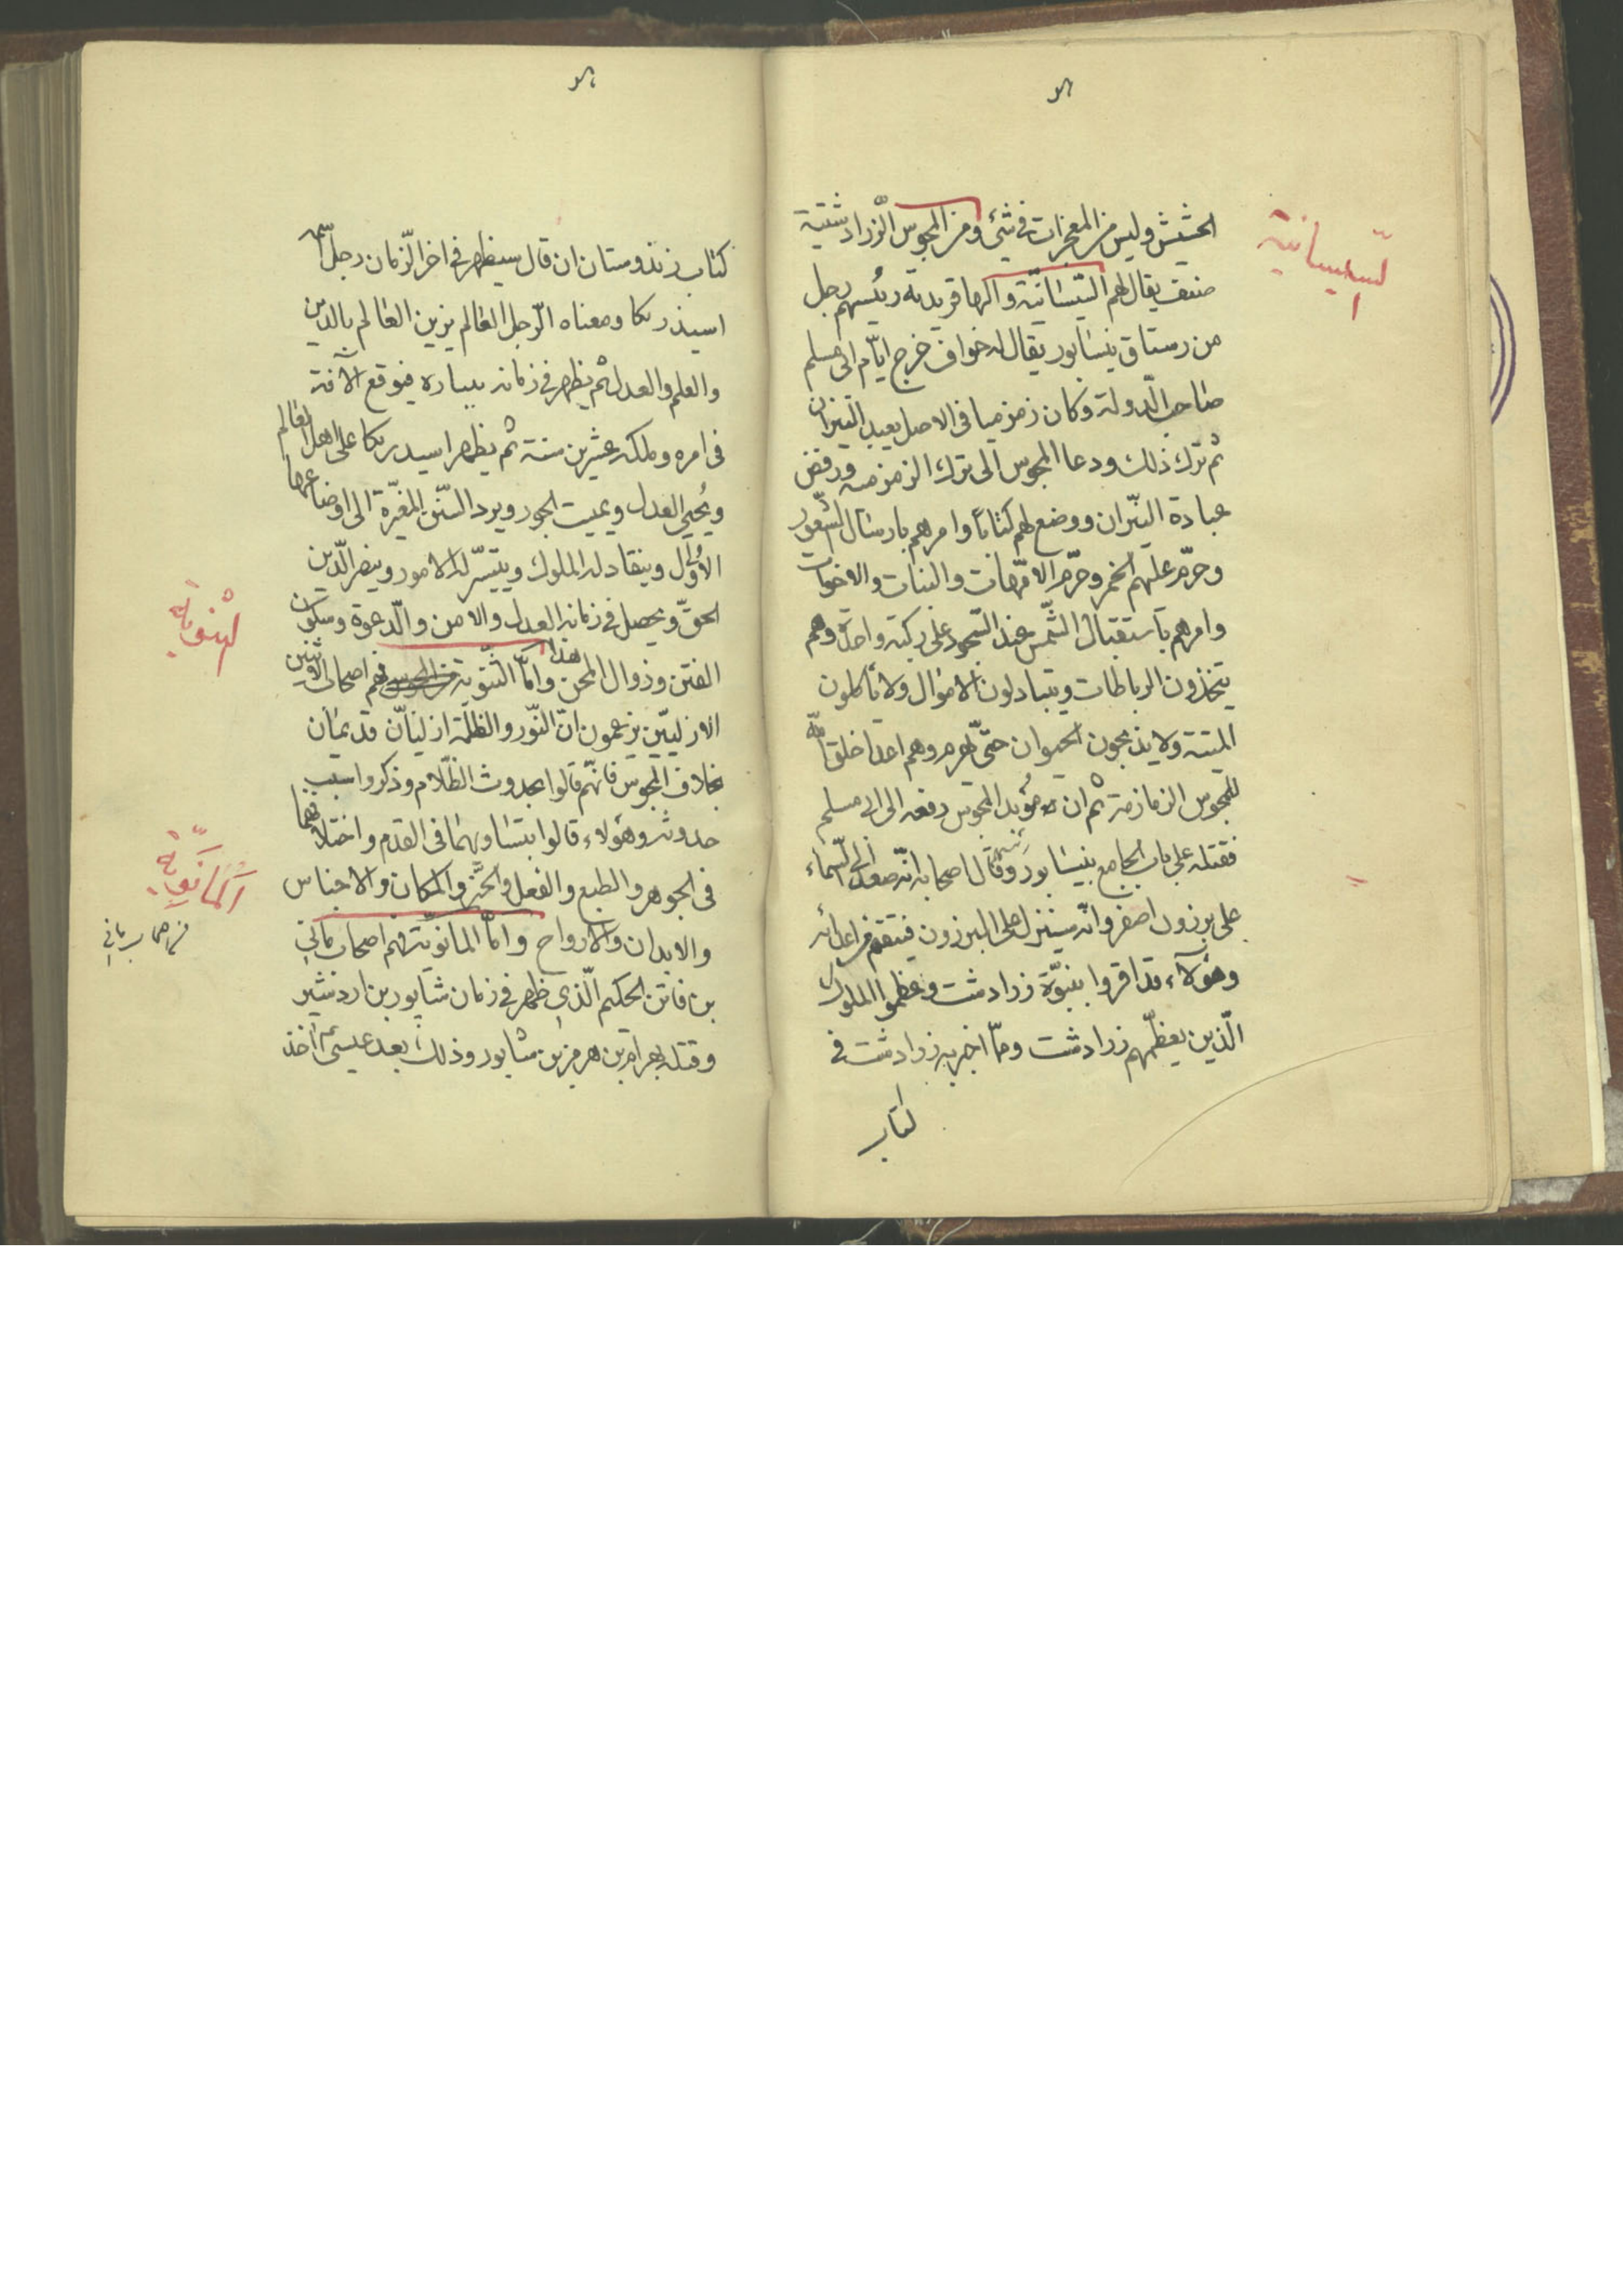 السيسانية
الحشيش وليس من المعجزات فى شئ ومن المجوس الزرادشتية
صنف يقال لهم السيسانية والبهافريدية رئيسهم رجل
من رستاق نيشابور يقال له خواف خرج ايام ابى مسلم
صاحب الدولة وكان زمزميا فى الاصل يعبد النيران
ثم ترك ذلك ودعا المجوس الى ترك الزمزمة ورفض
عبادة النيران ووضع لهم كتابا وامرهم بارسال الشعور
وحرم عليهم الخمر وحرم الامهات والبنات والاخوات
وامرهم باستقبال الشمس عند السجود على ركبة واحدة وهم
يتخذون الرباطات ويتبادلون الاموال ولا يأكلون
الميتة ولا يذبحون الحيوان حتى يهرم وهم اعدا خلق الله
للمجوس الزمازمة ثم ان موبد المجوس رفعه الى ابى مسلم
فقتله على باب الجامع بنيسابور وقال اصحابه انه صعد الى السماء
على برزون اصفر وانه سينزل على البرزون فينتقم من اعدائه
وهؤلاء قد اقروا بنبوة زرادشت وعظموا الملوك
الذين يعظمهم زرادشت ومما اخبر به زرادشت فى
كتاب
كتاب زندوستان ان قال سيظهر فى اخر الزمان رجل اسمه
اسيذريكا ومعناه الرجل العالم يزين العالم بالدين
والعلم والعدل ثم يظهر فى زمانه بتياره فيوقع الآفة
فى امره وملكه عشرين سنة ثم يظهر اسيدريكا على اهل العالم
ويحيى العدل ويميت الجور ويرد السنن المغيرة الى اوضاعها
الاول وينقاد له الملوك ويتيسر له الامور وينصر الدين
الحق ويحصل فى زمانه العدل والامن والدعوة وسكون
الفتن وزوال المحن هذا واما الثنوية فهم اصحاب الاثنين
الثنوية
الازليين يزعمون ان النور والظلمة ازليان قديمان
بخلاف المجوس فانهم قالوا بحدوث الظلام وذكروا سبب
حدوثه وهؤلاء قالوا بتساويهما فى القدم واختلافهما
فى الجوهر والطبع والفعل والحيز والمكان والاجناس
المانوية
والابدان والارواح واما المانوية فهم اصحاب مانى
بن فاتن الحكيم الذى ظهر فى زمان شابور بن اردشير
وقتله بهرام بن هرمز بن شابور وذلك بعد عيسى اخذ